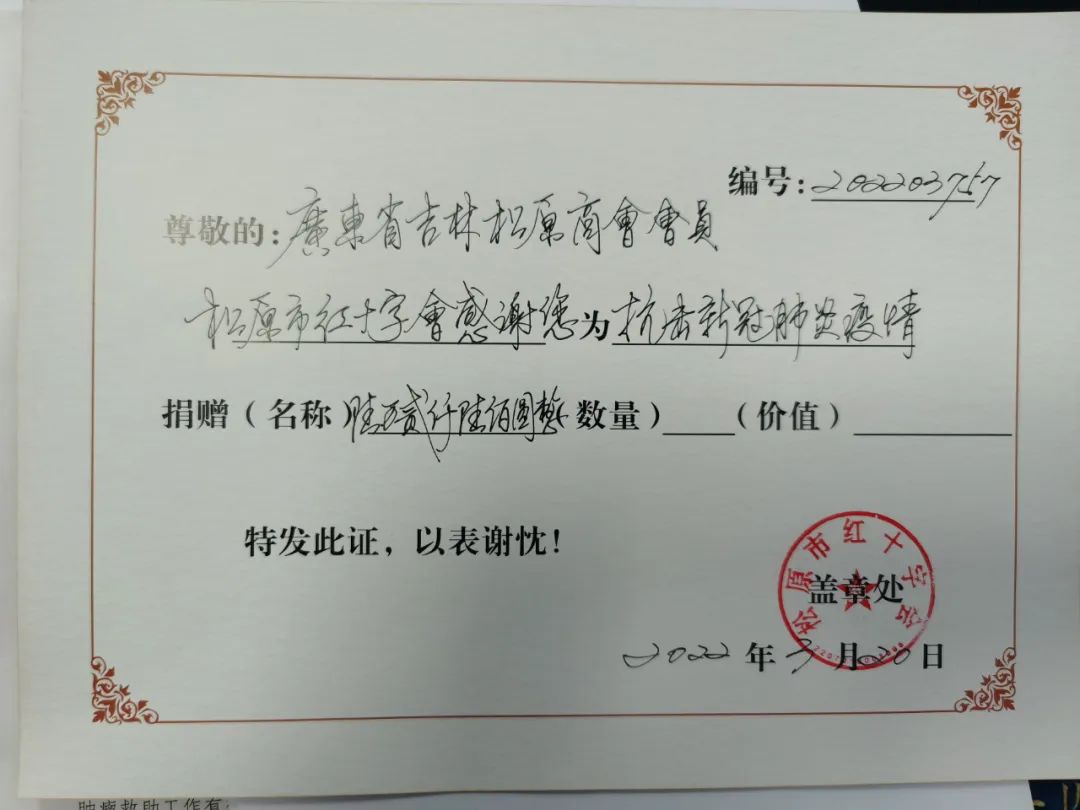 编号:202203757
尊敬的:廣東省吉林松原商會會員
松原市红十字會感谢您为抗击新冠肺炎疫情
捐赠(名称)陆万贰仟陆佰圆整数量)____(价值)________
特发此证,以表谢忱!
松原市红十字会
盖章处
2022年3月20日
肿瘤救助工作有: